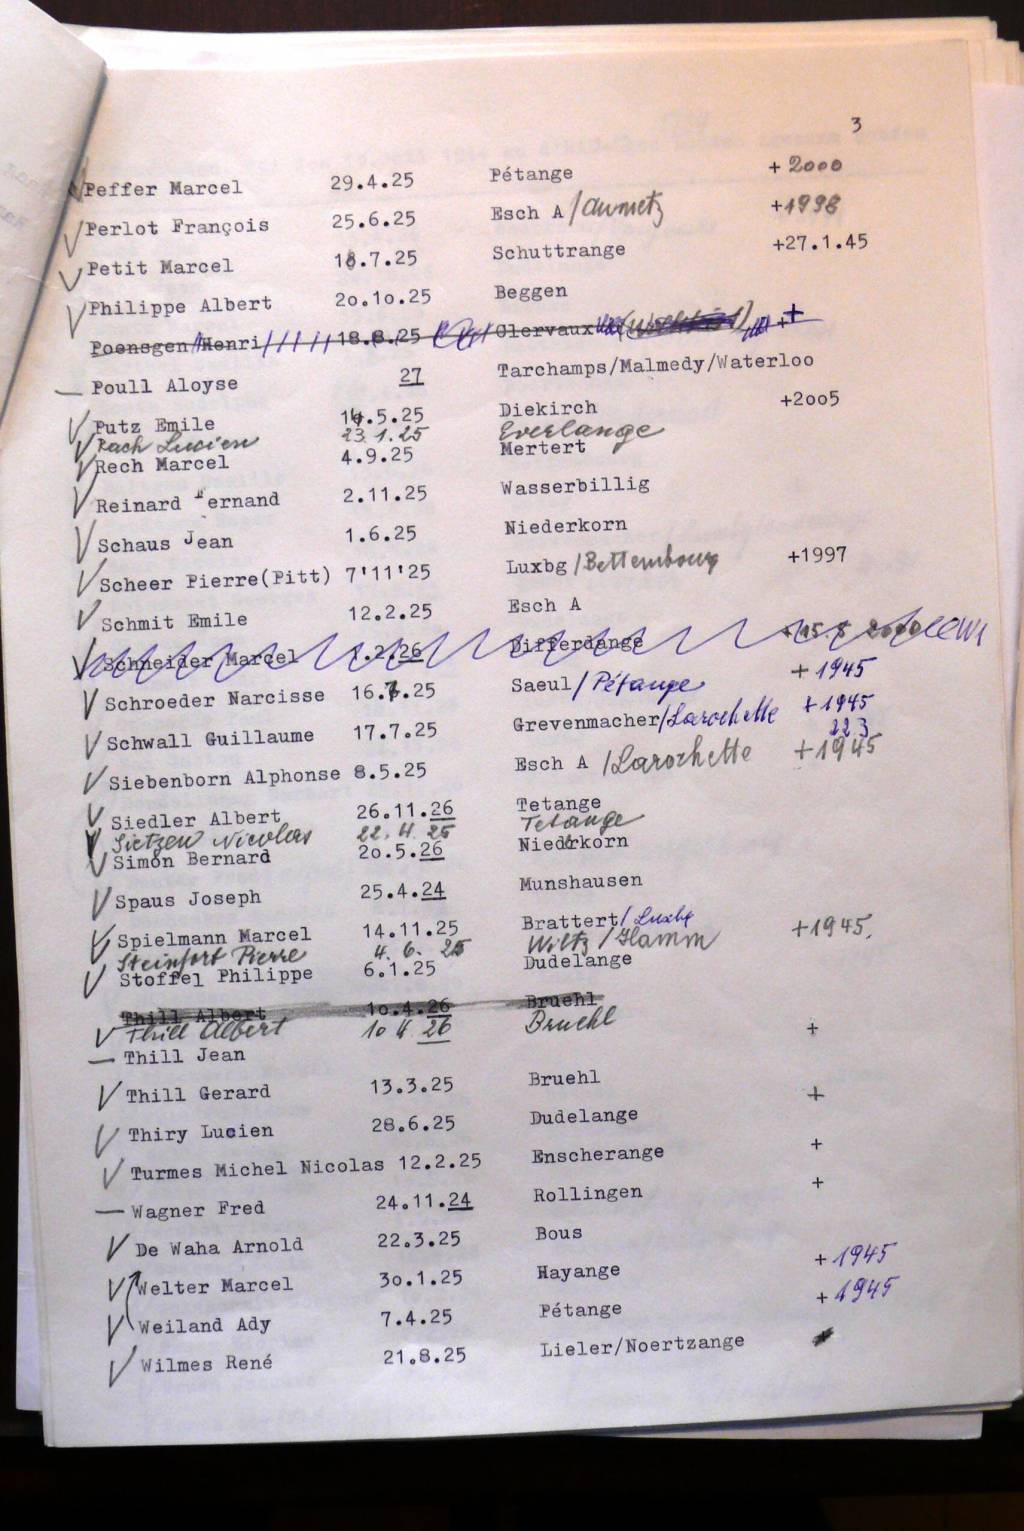 3
Peffer Marcel 29.4.25 Pétange + 2000
Perlot François 25.6.25 Esch A /Aumetz +1998
Petit Marcel 18.7.25 Schuttrange +27.1.45
Philippe Albert 2o.1o.25 Beggen
Poensgen Henri 18.8.25 Clervaux +
— Poull Aloyse 27 Tarchamps/Malmedy/Waterloo
Putz Emile 14.5.25 Diekirch +2oo5
Rach Lucien 23.1.25 Everlange
Rech Marcel 4.9.25 Mertert
Reinard Fernand 2.11.25 Wasserbillig
Schaus Jean 1.6.25 Niederkorn
Scheer Pierre(Pitt) 7'11'25 Luxbg /Bettembourg +1997
Schmit Emile 12.2.25 Esch A
Schneider Marcel 1.2.26 Differdange
Schroeder Narcisse 16.7.25 Saeul/Pétange + 1945
Schwall Guillaume 17.7.25 Grevenmacher/Larochette + 1945
22 3
Siebenborn Alphonse 8.5.25 Esch A /Larochette +1945
Siedler Albert 26.11.26 Tetange
Sietzen Nicolas 22.4.25 Tetange
Simon Bernard 2o.5.26 Niederkorn
Spaus Joseph 25.4.24 Munshausen
Spielmann Marcel 14.11.25 Brattert/Luxbg +1945.
Steinfort Pierre 4. 6. 25 Wiltz/Hamm
Stoffel Philippe 6.1.25 Dudelange
Thill Albert 1o.4.26 Bruehl
Thill Albert 10 4 26 Bruehl
— Thill Jean +
Thill Gerard 13.3.25 Bruehl
Thiry Lucien 28.6.25 Dudelange +
Turmes Michel Nicolas 12.2.25 Enscherange +
— Wagner Fred 24.11.24 Rollingen +
De Waha Arnold 22.3.25 Bous
Welter Marcel 3o.1.25 Hayange + 1945
Weiland Ady 7.4.25 Pétange + 1945
Wilmes René 21.8.25 Lieler/Noertzange